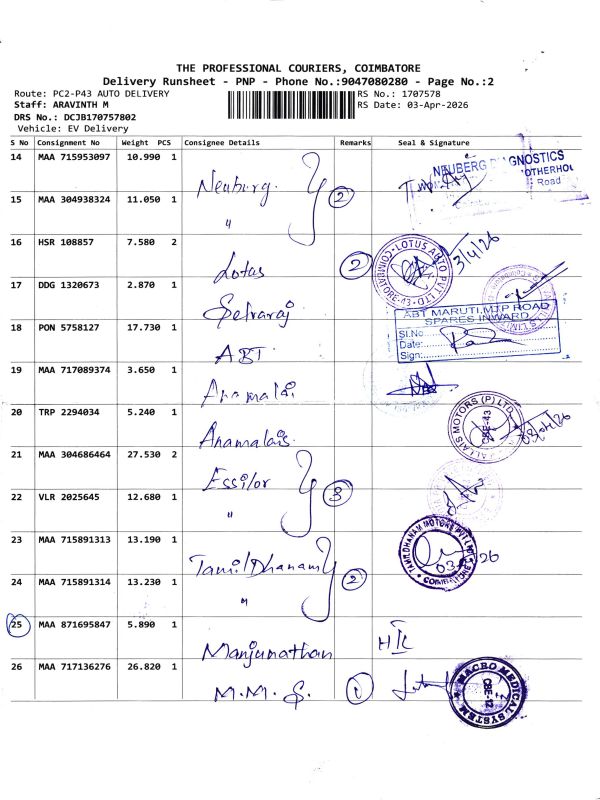 THE PROFESSIONAL COURIERS, COIMBATORE
Delivery Runsheet - PNP - Phone No.:9047080280 - Page No.:2
Route: PC2-P43 AUTO DELIVERY
RS No.: 1707578
Staff: ARAVINTH M
RS Date: 03-Apr-2026
DRS No.: DCJB170757802
Vehicle: EV Delivery
S No Consignment No Weight PCS Consignee Details Remarks Seal & Signature
14 MAA 715953097 10.990 1 Neuburg
NEUBERG DIAGNOSTICS
Road
15 MAA 304938324 11.050 1 " 2
16 HSR 108857 7.580 2 Lotus 2
LOTUS ABLO PVT LTD
COIMBATORE-43
3/4/26
17 DDG 1320673 2.870 1 Selvaraj
18 PON 5758127 17.730 1 ABT
ABT MARUTI, M.T.P ROAD
SPARES INWARD
Sl.No
Date:
Sign:
19 MAA 717089374 3.650 1 Anamalai
20 TRP 2294034 5.240 1 Anamalais
MOTORS (P) LTD
CBE-43
03/04/26
21 MAA 304686464 27.530 2 Essilor
22 VLR 2025645 12.680 1 " 3
23 MAA 715891313 13.190 1 Tamil Dhanam
TAMILDHANAM MOTORS PVT LTD
COIMBATORE
24 MAA 715891314 13.230 1 " 2
25 MAA 871695847 5.890 1 Manjunathan
26 MAA 717136276 26.820 1 M.M.S. 1
MACRO MEDICAL SYSTEM
CBE-12